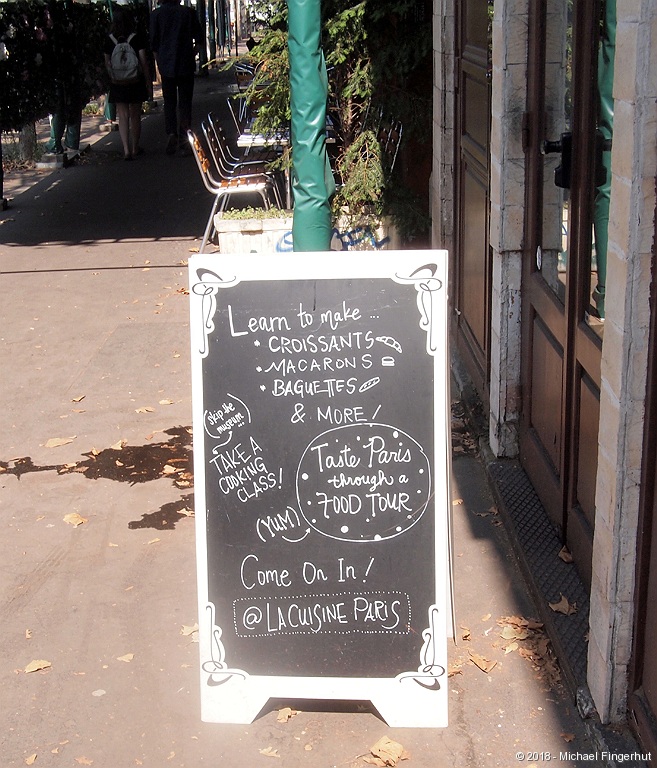 Learn to make ...
• CROISSANTS
• MACARONS
• BAGUETTES
& MORE!
(skip the
museum...)
TAKE A
COOKING
CLASS!
Taste Paris
through a
FOOD TOUR
(YUM)
Come On In!
@LACUISINE PARIS
© 2018 - Michael Fingerhut